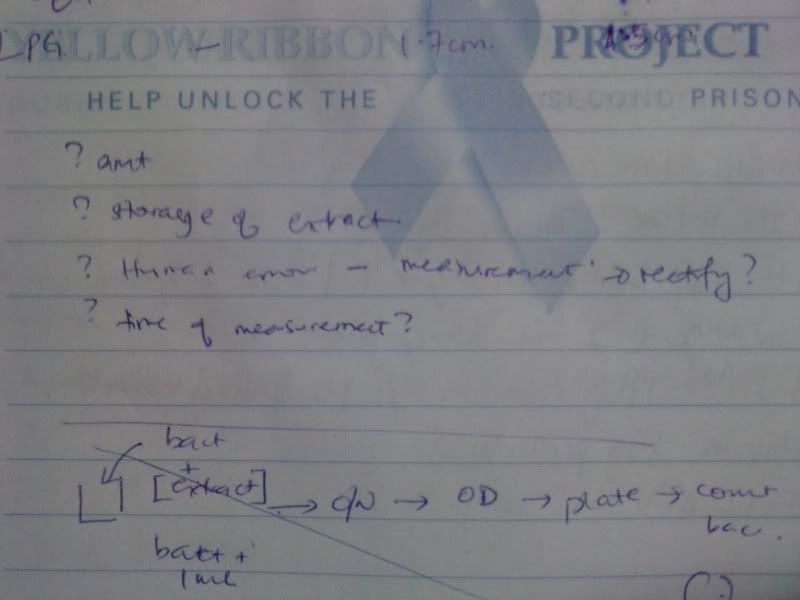 LPG. - 1.7cm.
YELLOW RIBBON PROJECT
HELP UNLOCK THE SECOND PRISON
? amt
? storage of extract
? Human error - measurement → rectify?
? time of measurement?
bact
+
[extract] → O/N → OD → plate → count
bac.
bact +
1 ml